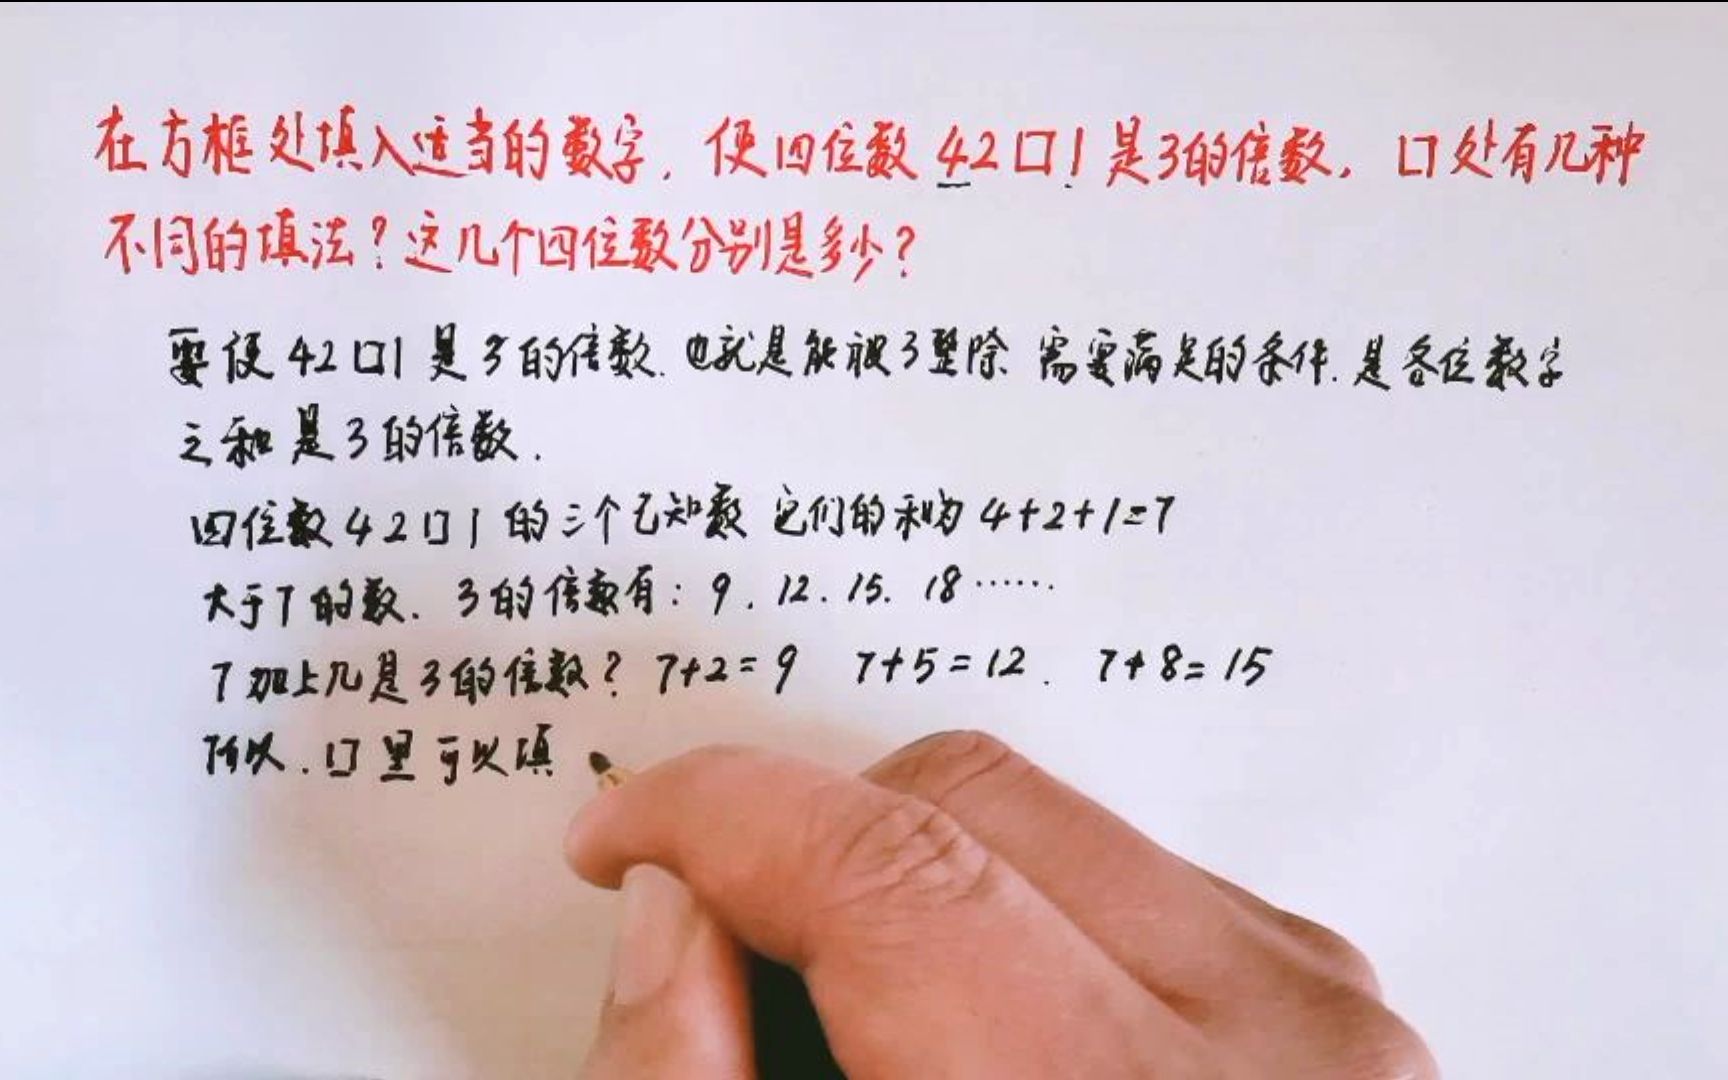 在方框处填入适当的数字，使四位数42口1是3的倍数，口处有几种
不同的填法？这几个四位数分别是多少？
要使42口1是3的倍数.也就是能被3整除 需要满足的条件.是各位数字
之和是3的倍数.
四位数42口1的三个已知数 它们的和为4+2+1=7
大于7的数.3的倍数有：9.12.15.18……
7加上几是3的倍数？7+2=9 7+5=12. 7+8=15
所以.口里可以填